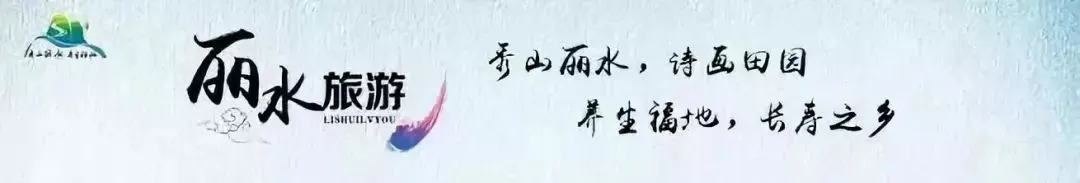 秀山丽水 养生福地
丽水旅游
LISHUILVYOU
秀山丽水，诗画田园
养生福地，长寿之乡